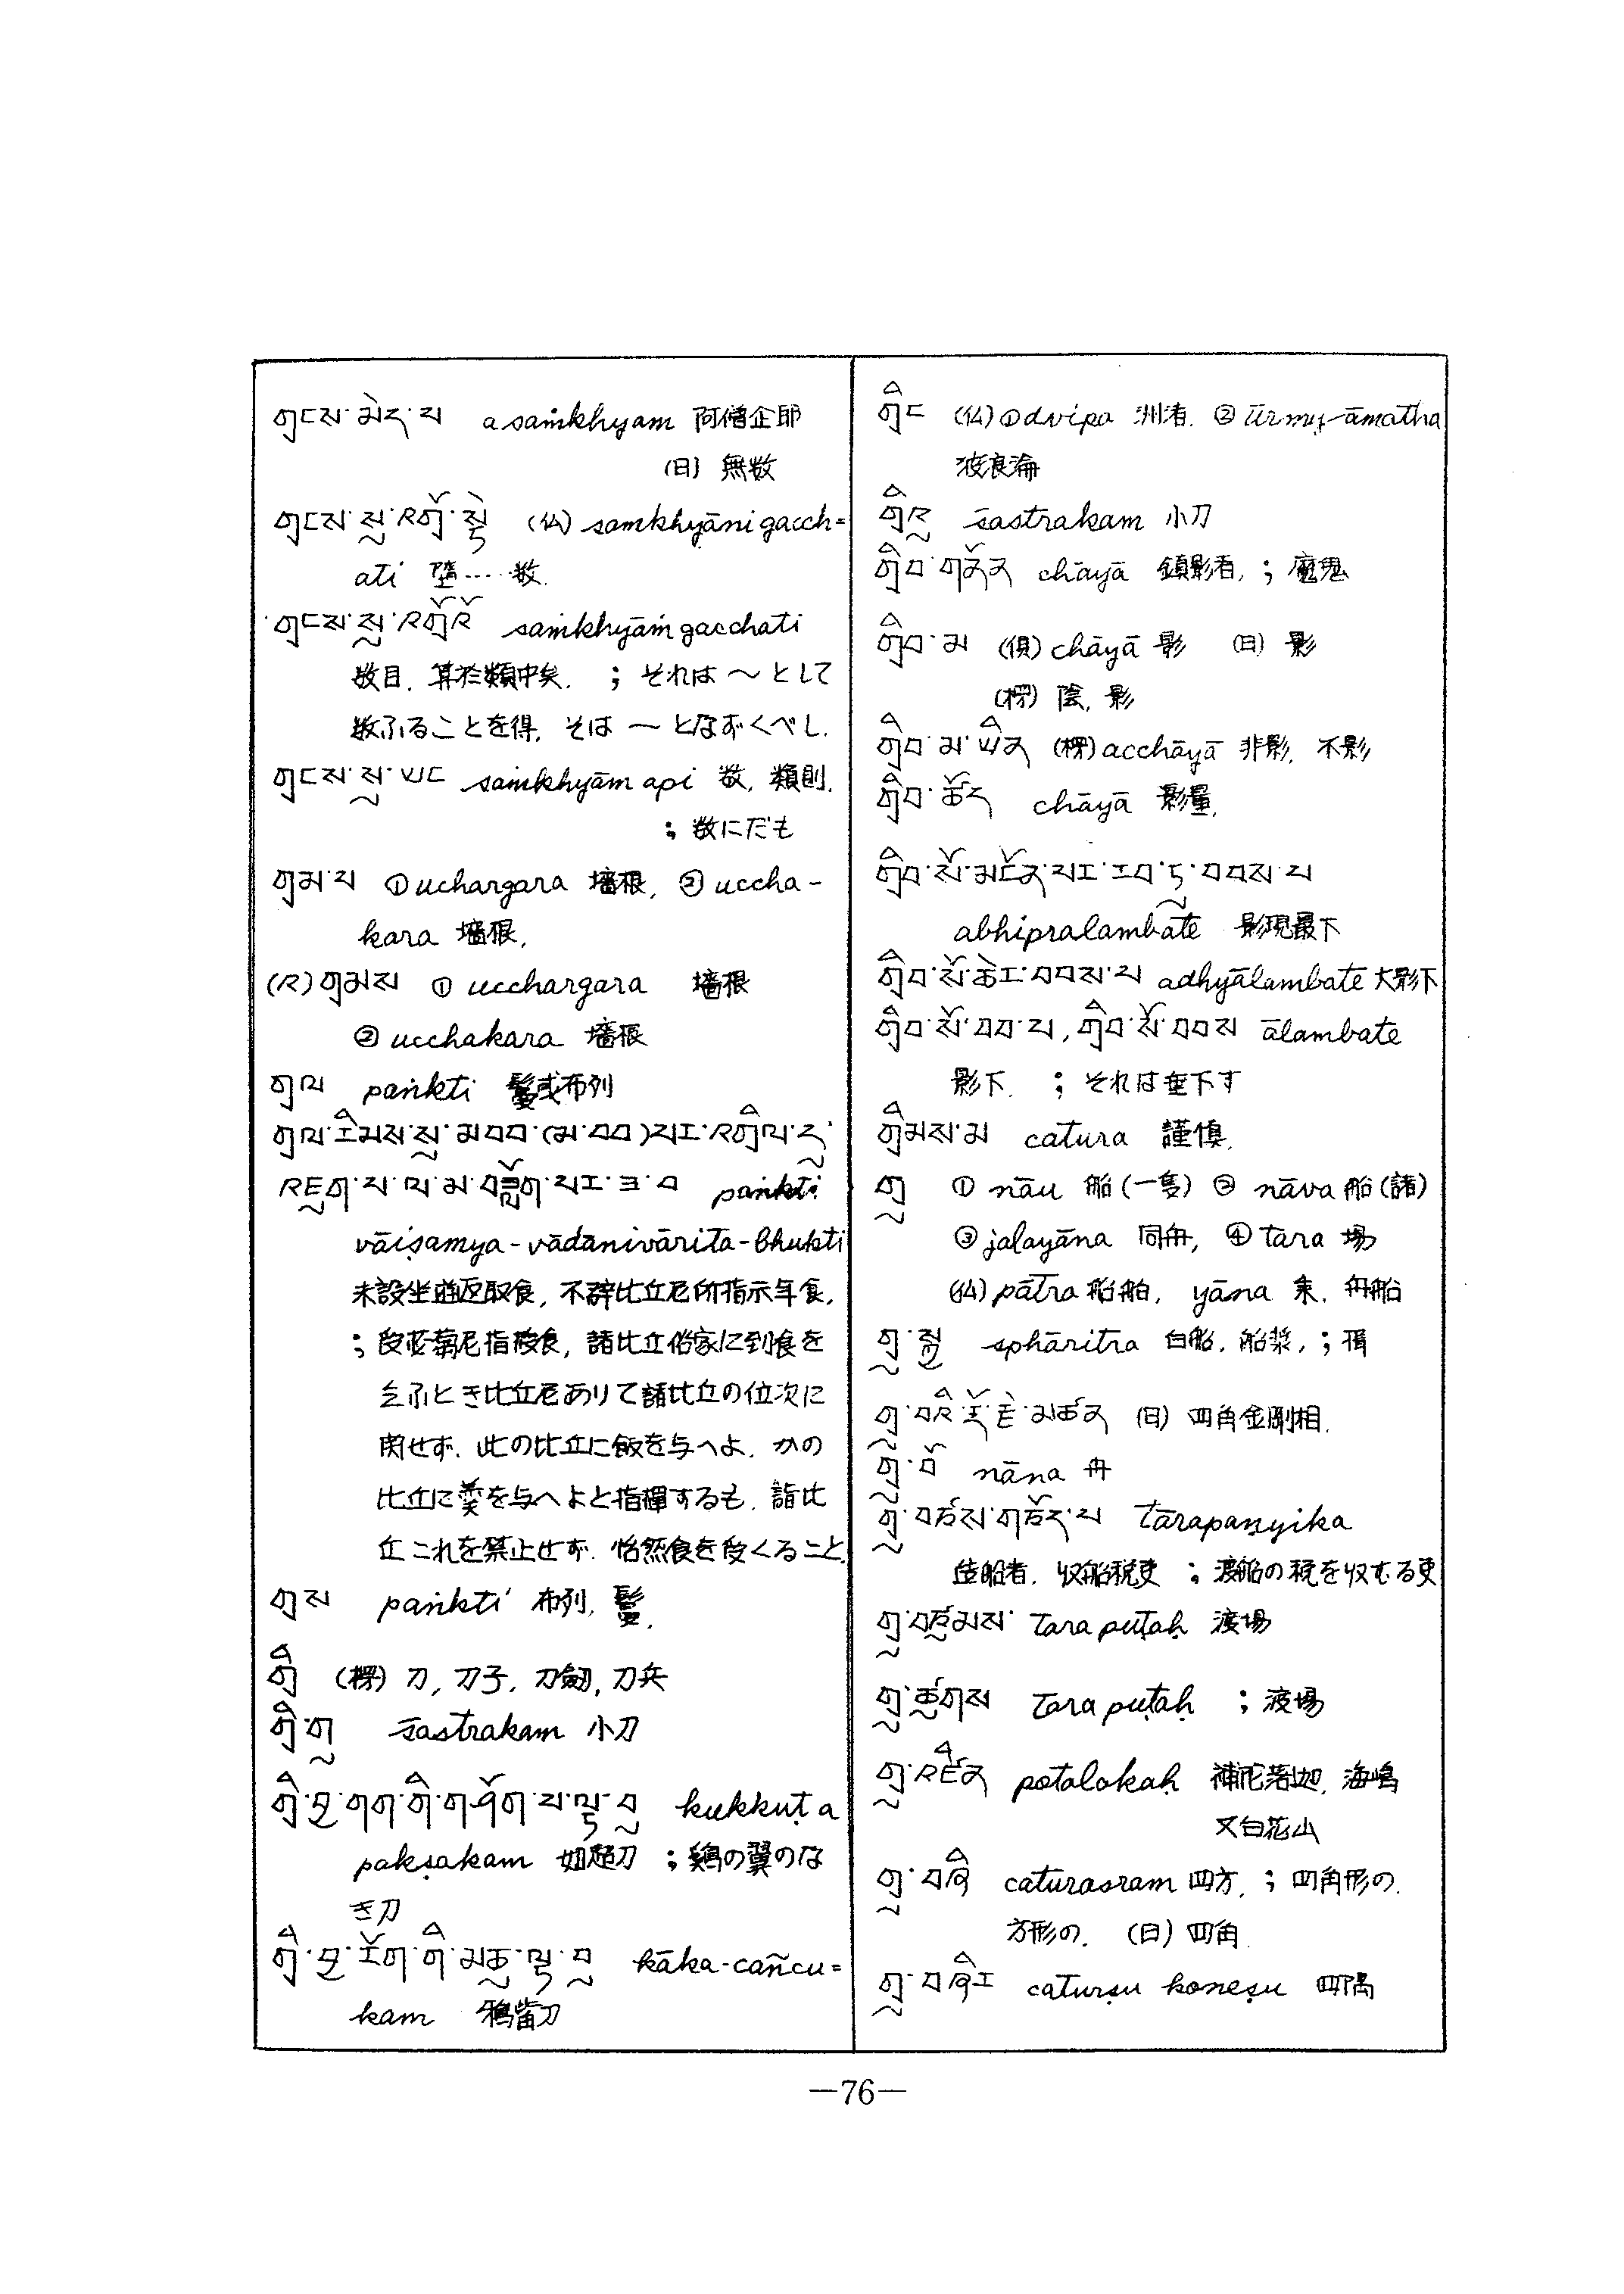 གྲངས་མེད་པ asaṁkhyam 阿僧企耶
(日) 無数
གྲངས་སུ་འགྲོ་སྟེ (仏) samkhyāni gacch=
ati 墮……数.
གྲངས་སུ་འགྲོའོ saṁkhyāṁ gacchati
数目. 算於類中矣. ; それは〜として
数ふることを得, そは〜となずくべし.
གྲངས་སུ་ཡང saṁkhyām api 数, 類則.
; 数にだも
གྲམ་པ ① uchargara 墻根, ② uccha-
kara 墻根,
(R) གྲམས ① ucchargara 墻根
② ucchakara 墻根
གྲལ paṅkti 鬘或布列
གྲལ་རིམས་སུ་མབབ་(མ་བབ)པར་འགྲིལ་དུ་
paṅkti
vāiṣamya-vādānivārita-bhukti
; 諸比丘俗家に到食を
乞ふとき比丘尼ありて諸比丘の位次に
関せず. 此の比丘に飯を与へよ. かの
比丘に羹を与へよと指揮するも. 諸比
丘これを禁止せず. 怡然食を受くること.
གྲས paṅkti 布列, 鬘.
གྲི (楞) 刀, 刀子, 刀劔, 刀兵
གྲི་གུ śastrakam 小刀
kukkuṭa
pakṣakam 如翅刀 ; 鷄の翼のな
き刀
གྲི་བྱ་རོག་གི་མཆུ་ལྟ་བུ kāka-cañcu=
kam 鴉嘴刀
གྲིང (仏) ① dvipa 洲渚. ② ūrmy-āmatha
波浪淪
གྲིའུ śastrakam 小刀
གྲིབ་གནོན chāyā 鎮影者, ; 魔鬼
གྲིབ་མ (倶) chāyā 影 (日) 影
(楞) 陰, 影
གྲིབ་མ་ཡིན (楞) acchāyā 非影, 不影
གྲིབ་ཚོད chāyā 影量,
གྲིབ་སོ་མངོན་པར་རབ་ཏུ་བབས་པ
abhipralambate 影現最下
གྲིབ་སོ་ཆེར་བབས་པ adhyālambate 大影下
གྲིབ་སོ་བབ་པ, གྲིབ་སོ་བབས ālambate
影下. ; それは垂下す
གྲིམས་མ catura 謹慎.
གྲུ ① nāu 船(一隻) ② nāva 船(諸)
③ jalayāna 同舟, ④ tāra 場
(仏) pātra 船舶, yāna 乗. 舟船
sphāritra 白船, 船槳, ; 楫
གྲུ་བའི་རྡོ་རྗེ་མཚན (日) 四角金剛相.
གྲུ་བོ nāna 舟
གྲུ་བཙས་གཅོད་པ tārapaṇyika
造船者. 収船税吏 ; 渡船の税を収むる吏
གྲུ་བཙུམས་ tara puṭaḥ 渡場
གྲུ་ཚུགས tara puṭaḥ ; 渡場
གྲུ་འཛིན potalakaḥ 補陀落迦, 海嶋
又白花山
གྲུ་བཞི caturasram 四方. ; 四角形の.
方形の. (日) 四角
གྲུ་བཞིར caturṣu koneṣu 四隅
—76—